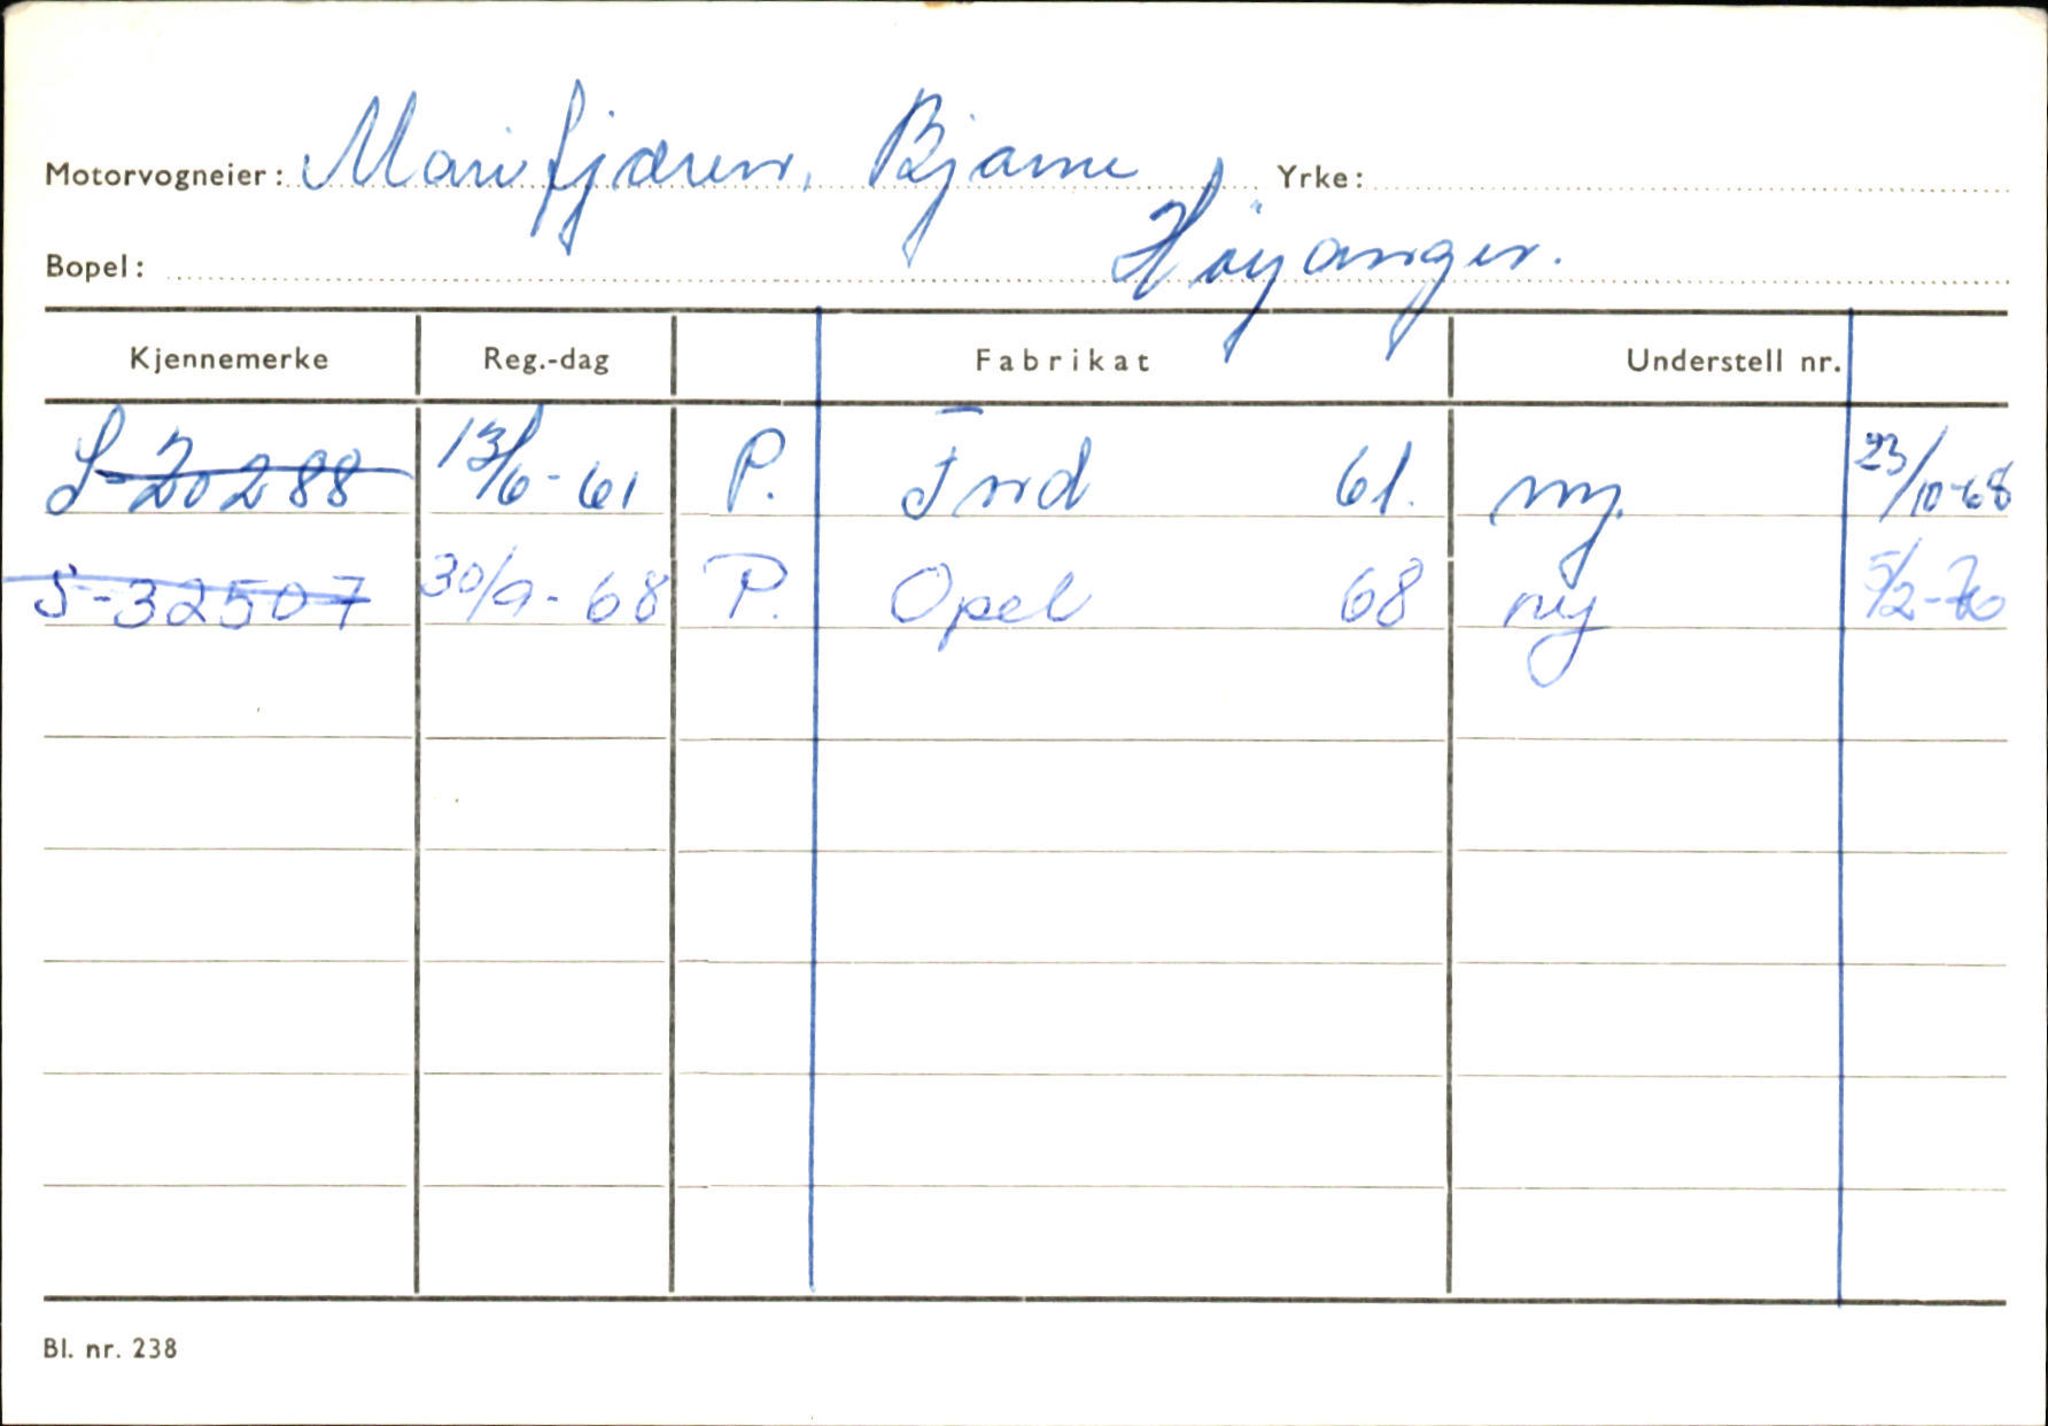 Motorvogneier: Marifjæren, Bjarne Yrke:
Bopel: Høyanger.
Kjennemerke Reg.-dag Fabrikat Understell nr.
S-20288 13/6-61 P. Ford 61. ny. 23/10-68
S-32507 30/9-68 P. Opel 68 ny 5/2-76
Bl. nr. 238